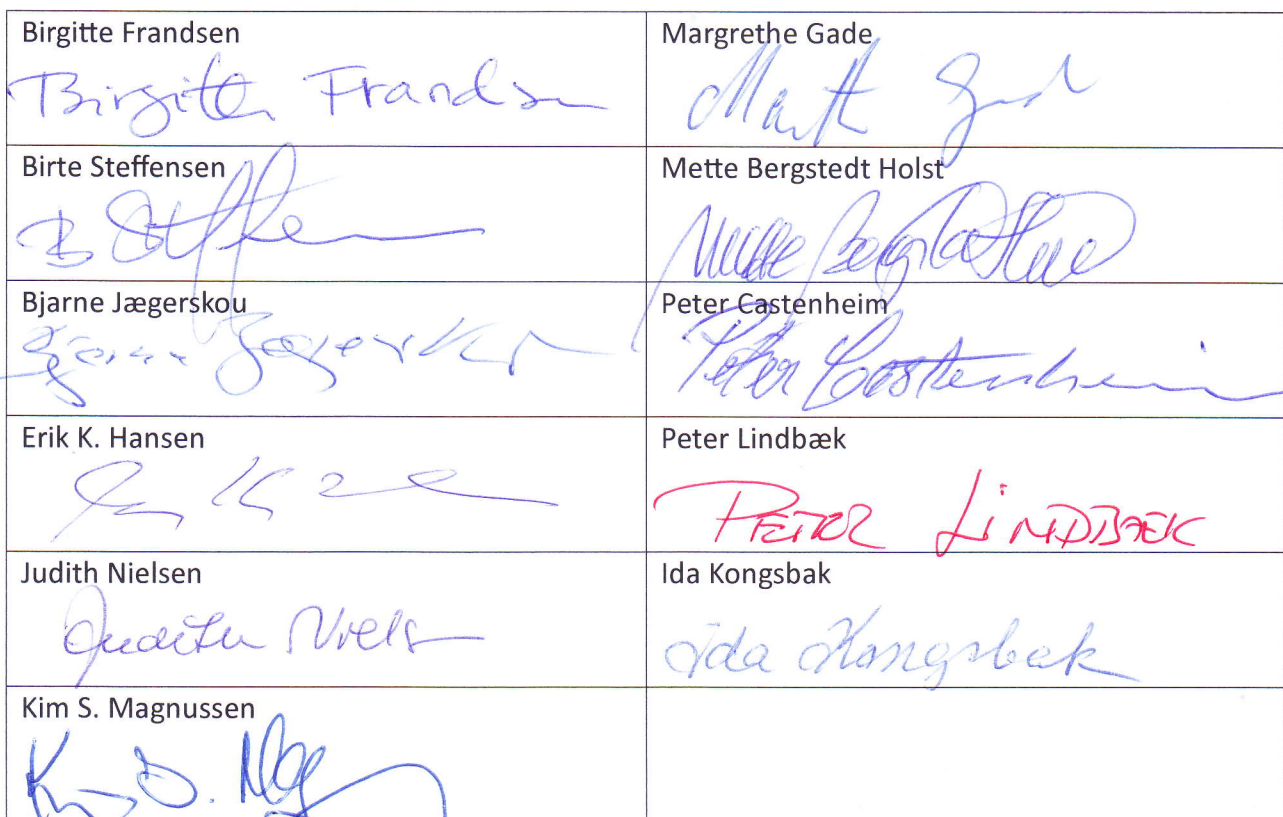 Birgitte Frandsen
Birgitte Frandsen
Margrethe Gade
Birte Steffensen
B Steffen
Mette Bergstedt Holst
Mette Bergstedt Holst
Bjarne Jægerskou
Bjarne Jægerskou
Peter Castenheim
Peter Castenheim
Erik K. Hansen
Peter Lindbæk
PETER LINDBÆK
Judith Nielsen
Judith Niels
Ida Kongsbak
Ida Kongsbak
Kim S. Magnussen